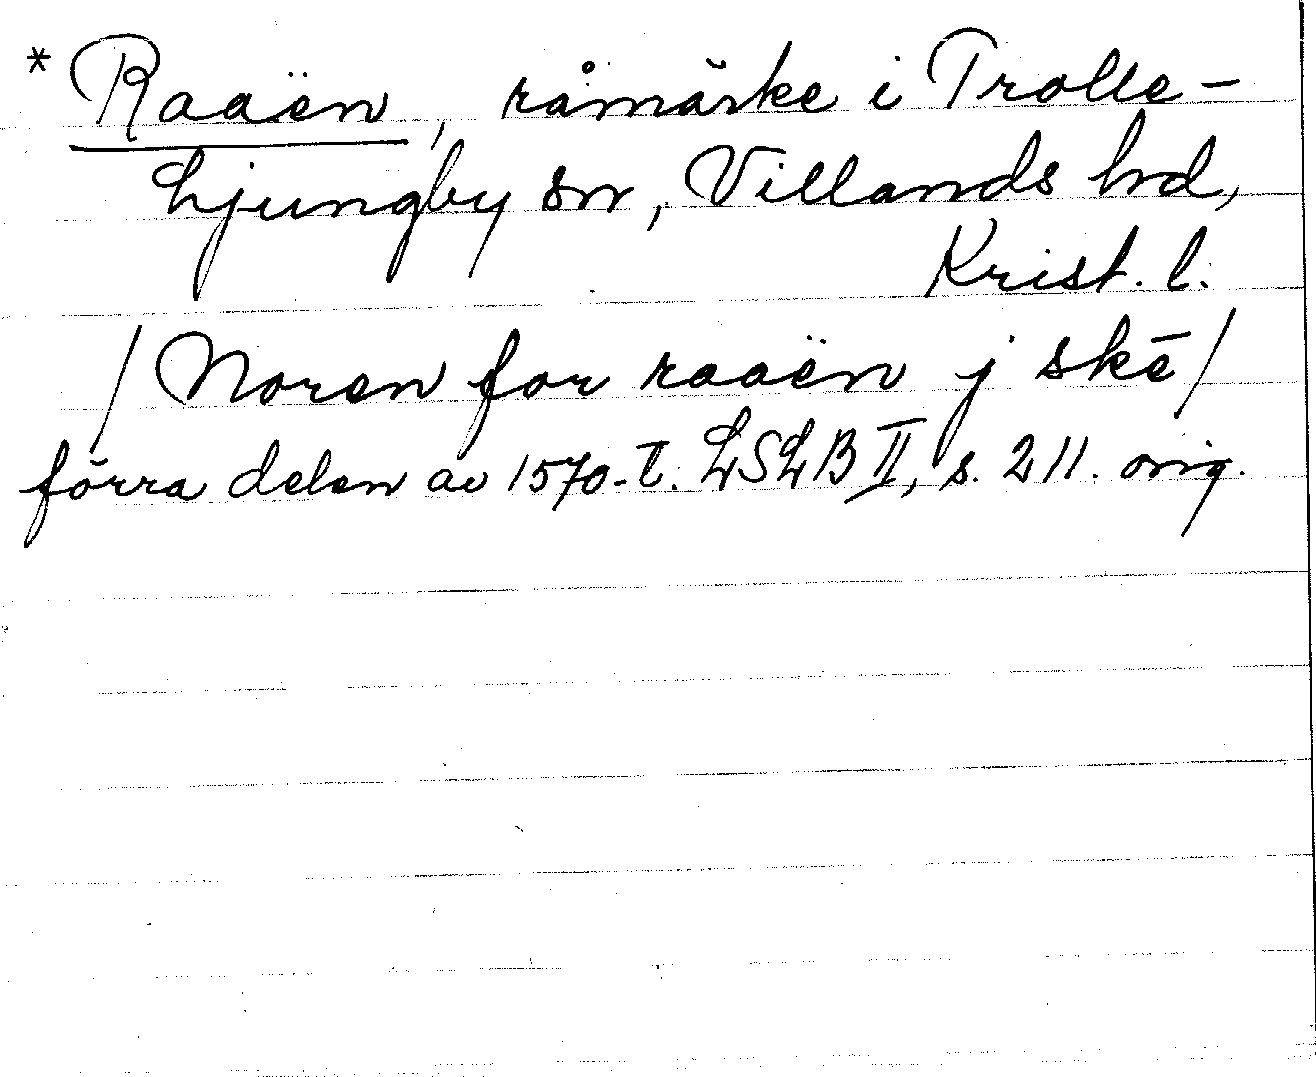 * Raaën, råmärke i Trolle-
Ljungby sn, Villands hrd,
Krist. l.
/ Noren for raaën j skē /
förra delen av 1570-t. LSLB II, s. 211. orig.